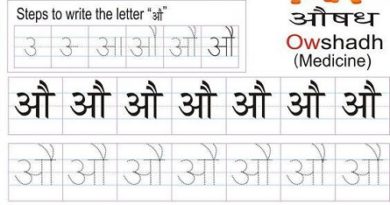 Steps to write the letter “औ”
उ उ आ औ औ औ
औषध
Owshadh
(Medicine)
औ औ औ औ औ औ औ
औ औ औ औ औ औ औ